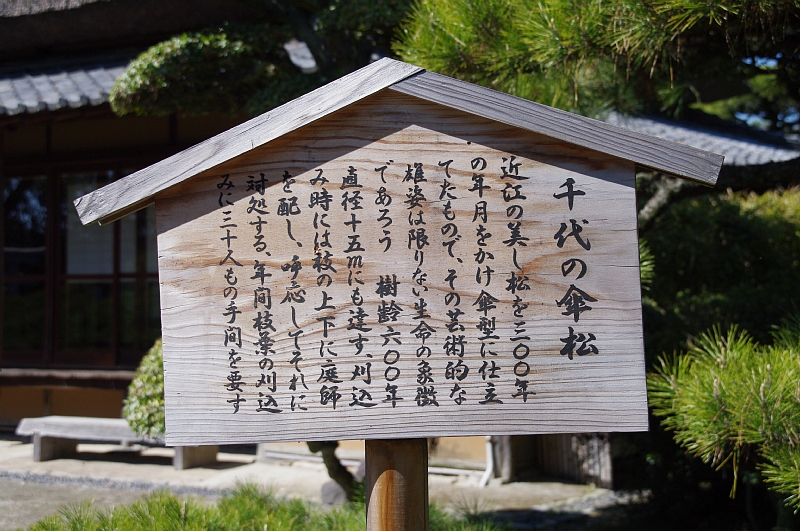 千代の傘松
近江の美し松を三〇〇年
の年月をかけ傘型に仕立
てたもので、その芸術的な
雄姿は限りない生命の象徴
であろう　樹齢六〇〇年
直径十五mにも達す、刈込
み時には枝の上下に庭師
を配し、呼応してそれに
対処する、年間枝葉の刈込
みに三十人もの手間を要す